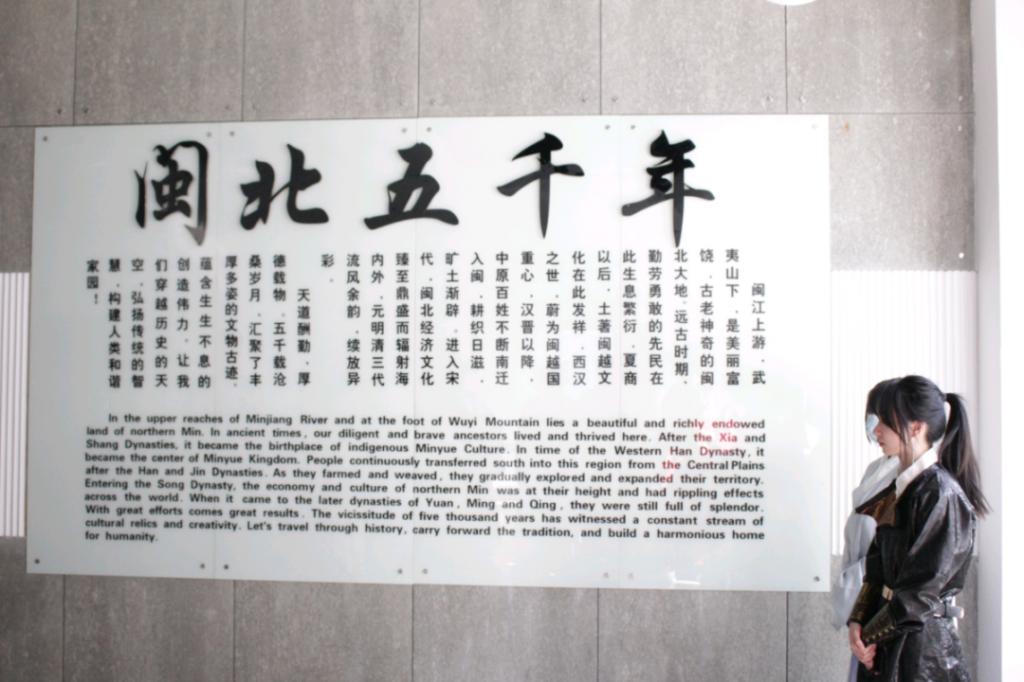 闽北五千年
闽江上游，武
夷山下，是美丽富
饶，古老神奇的闽
北大地。远古时期，
勤劳勇敢的先民在
此生息繁衍，夏商
以后，土著闽越文
化在此发祥，西汉
之世，蔚为闽越国
重心，汉晋以降，
中原百姓不断南迁
入闽，耕织日滋，
旷土渐辟。进入宋
代，闽北经济文化
臻至鼎盛而辐射海
内外，元明清三代
流风余韵，续放异
彩。
天道酬勤，厚
德载物。五千载沧
桑岁月，汇聚了丰
厚多姿的文物古迹，
蕴含生生不息的
创造伟力。让我
们穿越历史的天
空，弘扬传统的智
慧，构建人类和谐
家园！
In the upper reaches of Minjiang River and at the foot of Wuyi Mountain lies a beautiful and richly endowed
land of northern Min. In ancient times, our diligent and brave ancestors lived and thrived here. After the Xia and
Shang Dynasties, it became the birthplace of indigenous Minyue Culture. In time of the Western Han Dynasty, it
became the center of Minyue Kingdom. People continuously transferred south into this region from the Central Plains
after the Han and Jin Dynasties. As they farmed and weaved, they gradually explored and expanded their territory.
Entering the Song Dynasty, the economy and culture of northern Min was at their height and had rippling effects
across the world. When it came to the later dynasties of Yuan, Ming and Qing, they were still full of splendor.
With great efforts comes great results. The vicissitude of five thousand years has witnessed a constant stream of
cultural relics and creativity. Let's travel through history, carry forward the tradition, and build a harmonious home
for humanity.